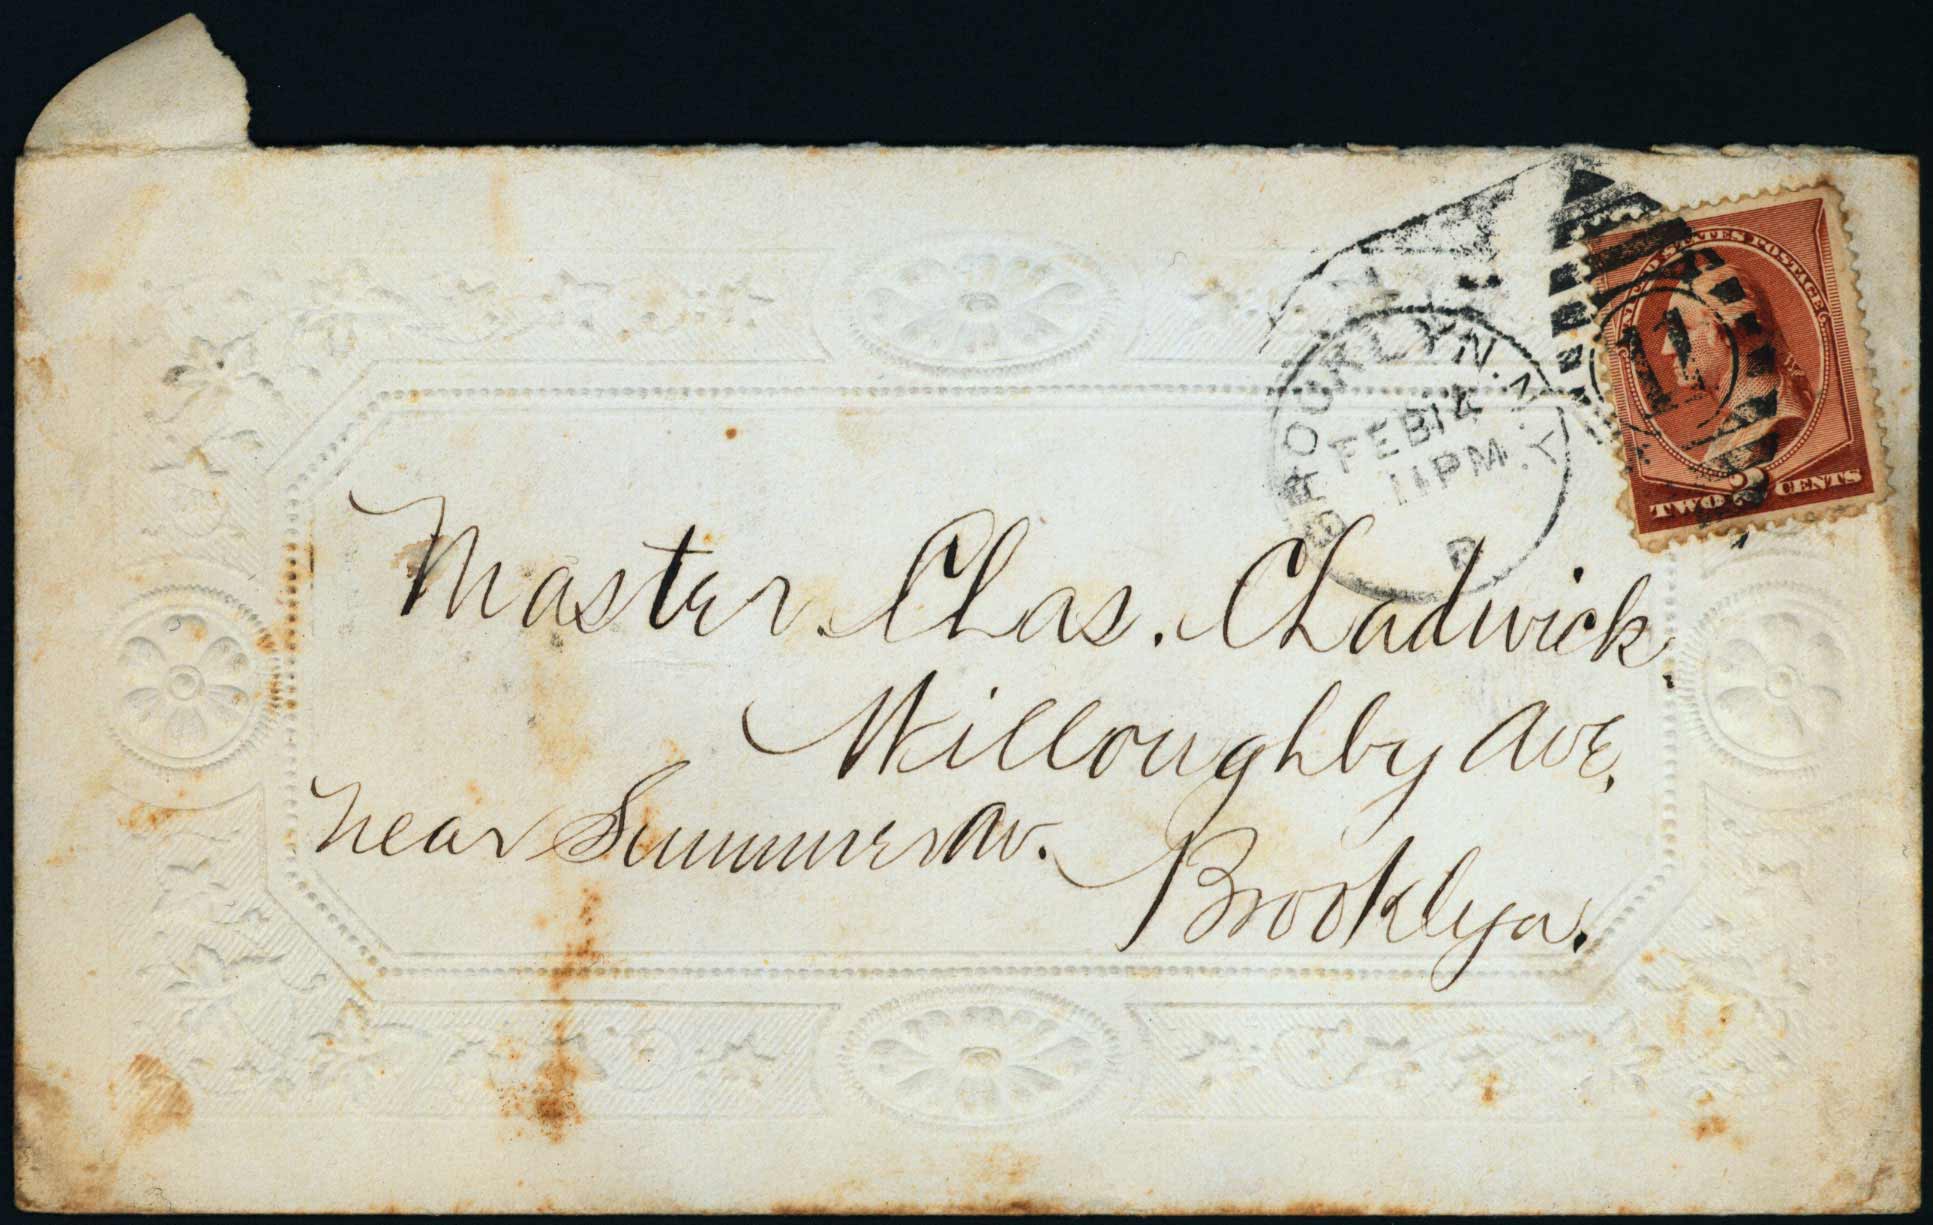 UNITED STATES POSTAGE
11
TWO 2 CENTS
BROOKLYN. N.Y.
FEB 14
11 PM
D
Master. Chas. Chadwick.
Willoughby Ave,
near Sumner Av.
Brooklyn.